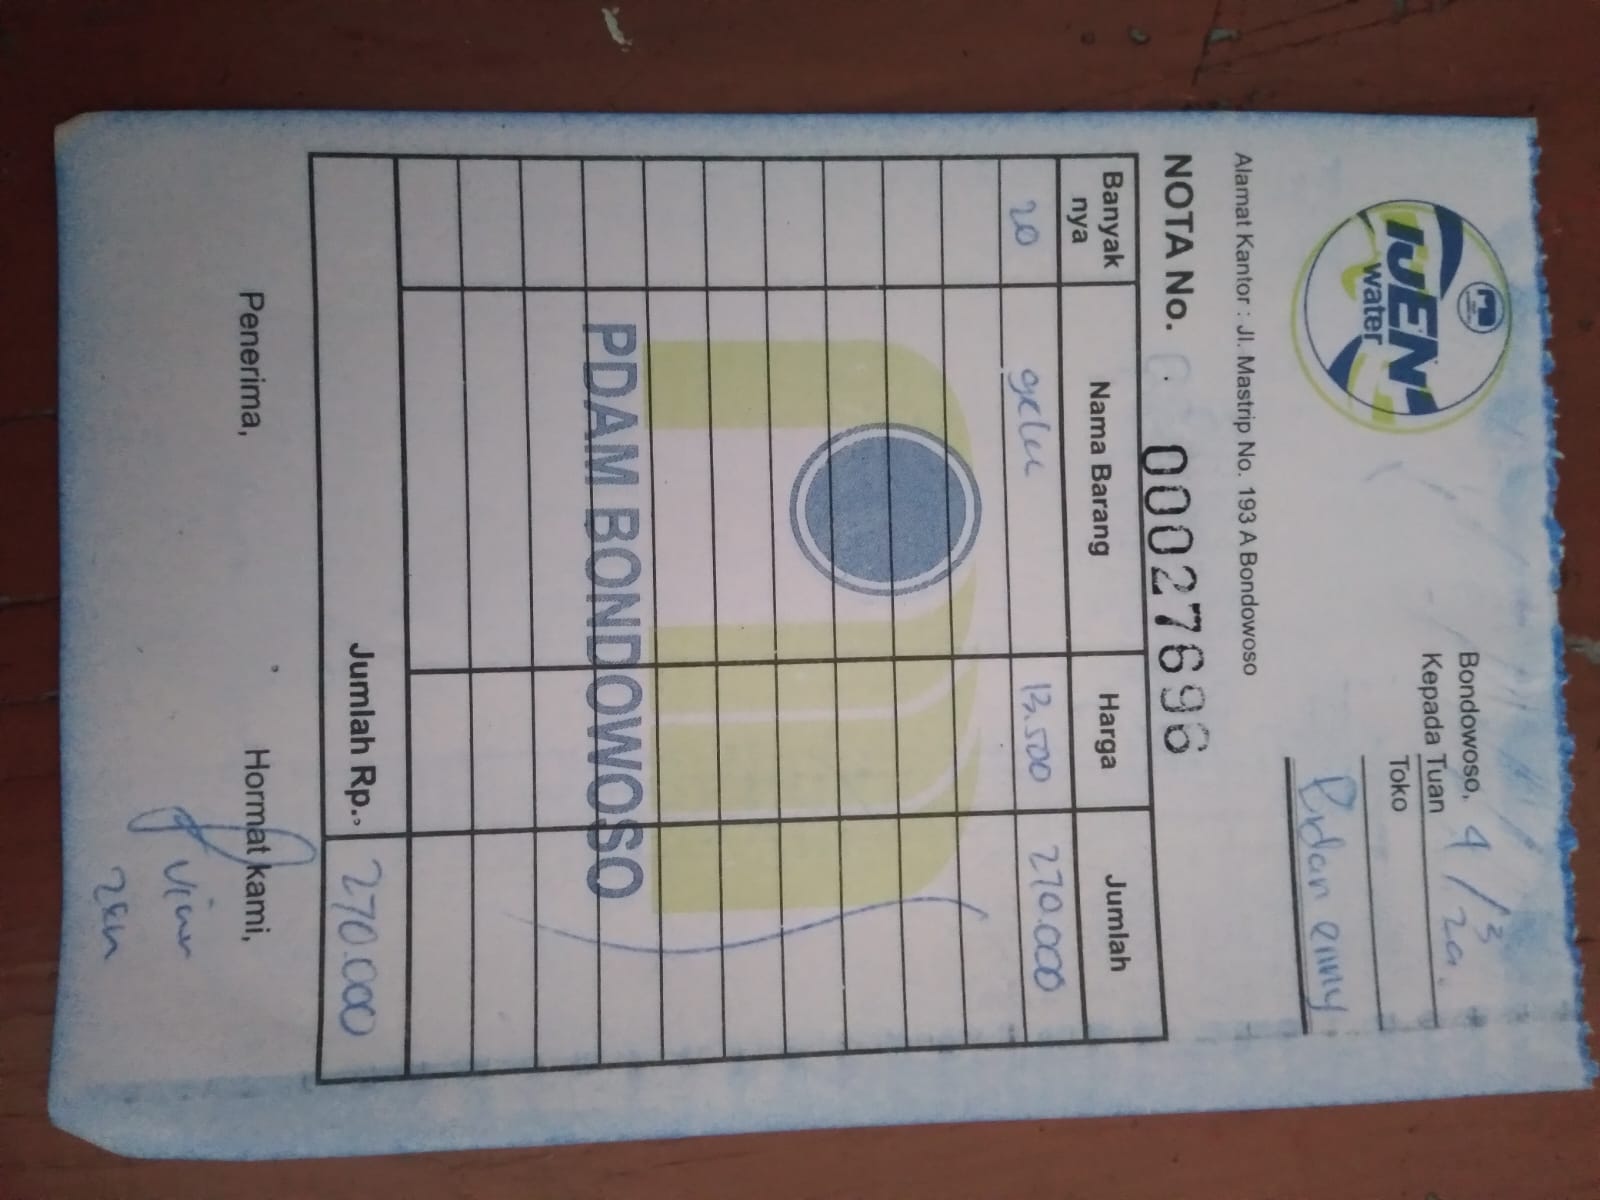 IJEN
water
Bondowoso, 4/3
20
Kepada Tuan
Toko
enny
Alamat Kantor : Jl. Mastrip No. 193 A Bondowoso
NOTA No. 00027696
Banyak nya Nama Barang Harga Jumlah
20 gelu 13.500 270.000
PDAM BONDOWOSO
Jumlah Rp. 270.000
Penerima, Hormat kami,